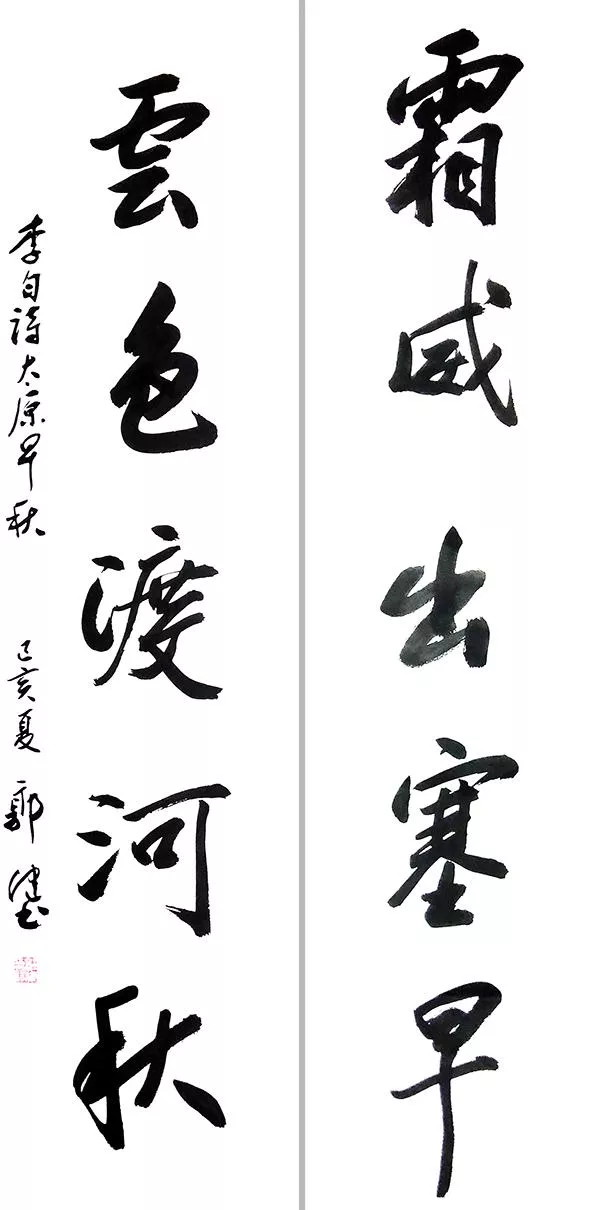 霜威出塞早
雲色渡河秋
李白詩太原早秋
己亥夏 郭健书